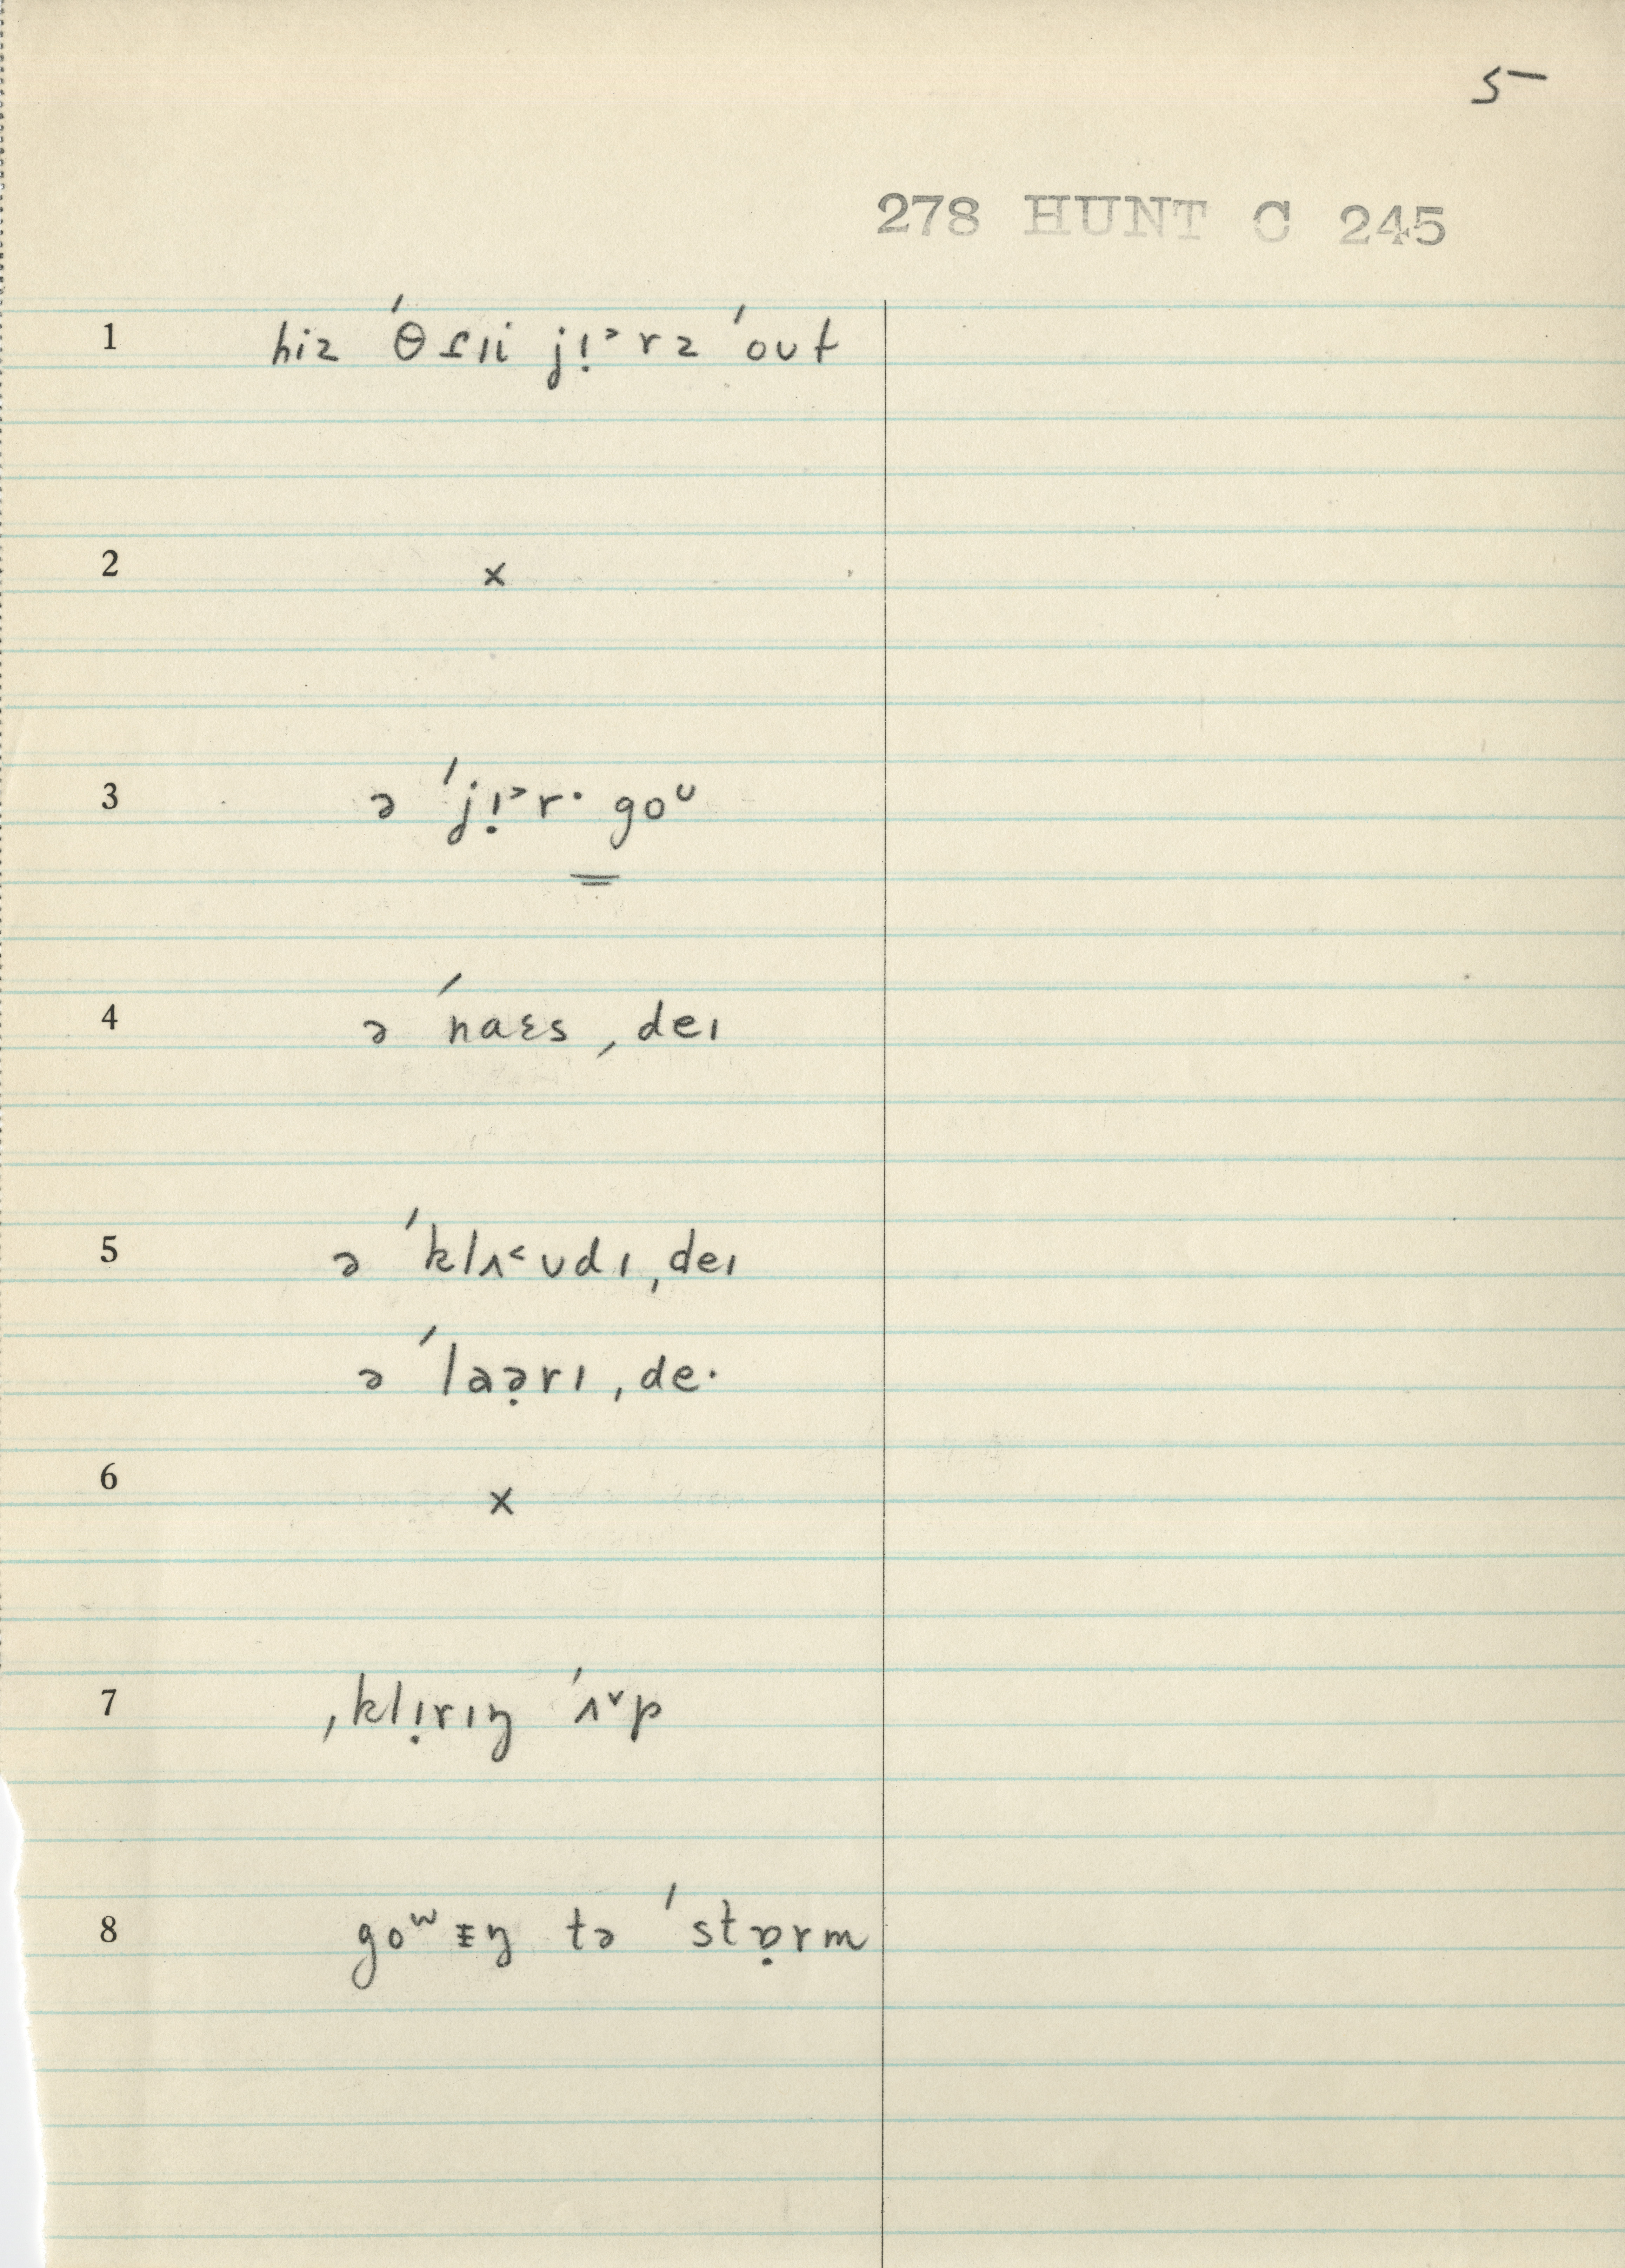 5
278 HUNT C 245
1 hiz ˈθɾii jı̣˃rz ˈout
2 x
3 ə ˈjı̣˃r· goᶸ
4 ə ˈnaɛs ˌdeɪ
5 ə ˈklʌ˂ʊdɪ ˌdeɪ
ə ˈlaə̣rɪ ˌde·
6 x
7 ˌklı̣rɪŋ ˈʌ˅p
8 goʷᵻŋ tə ˈstɒ̣rm